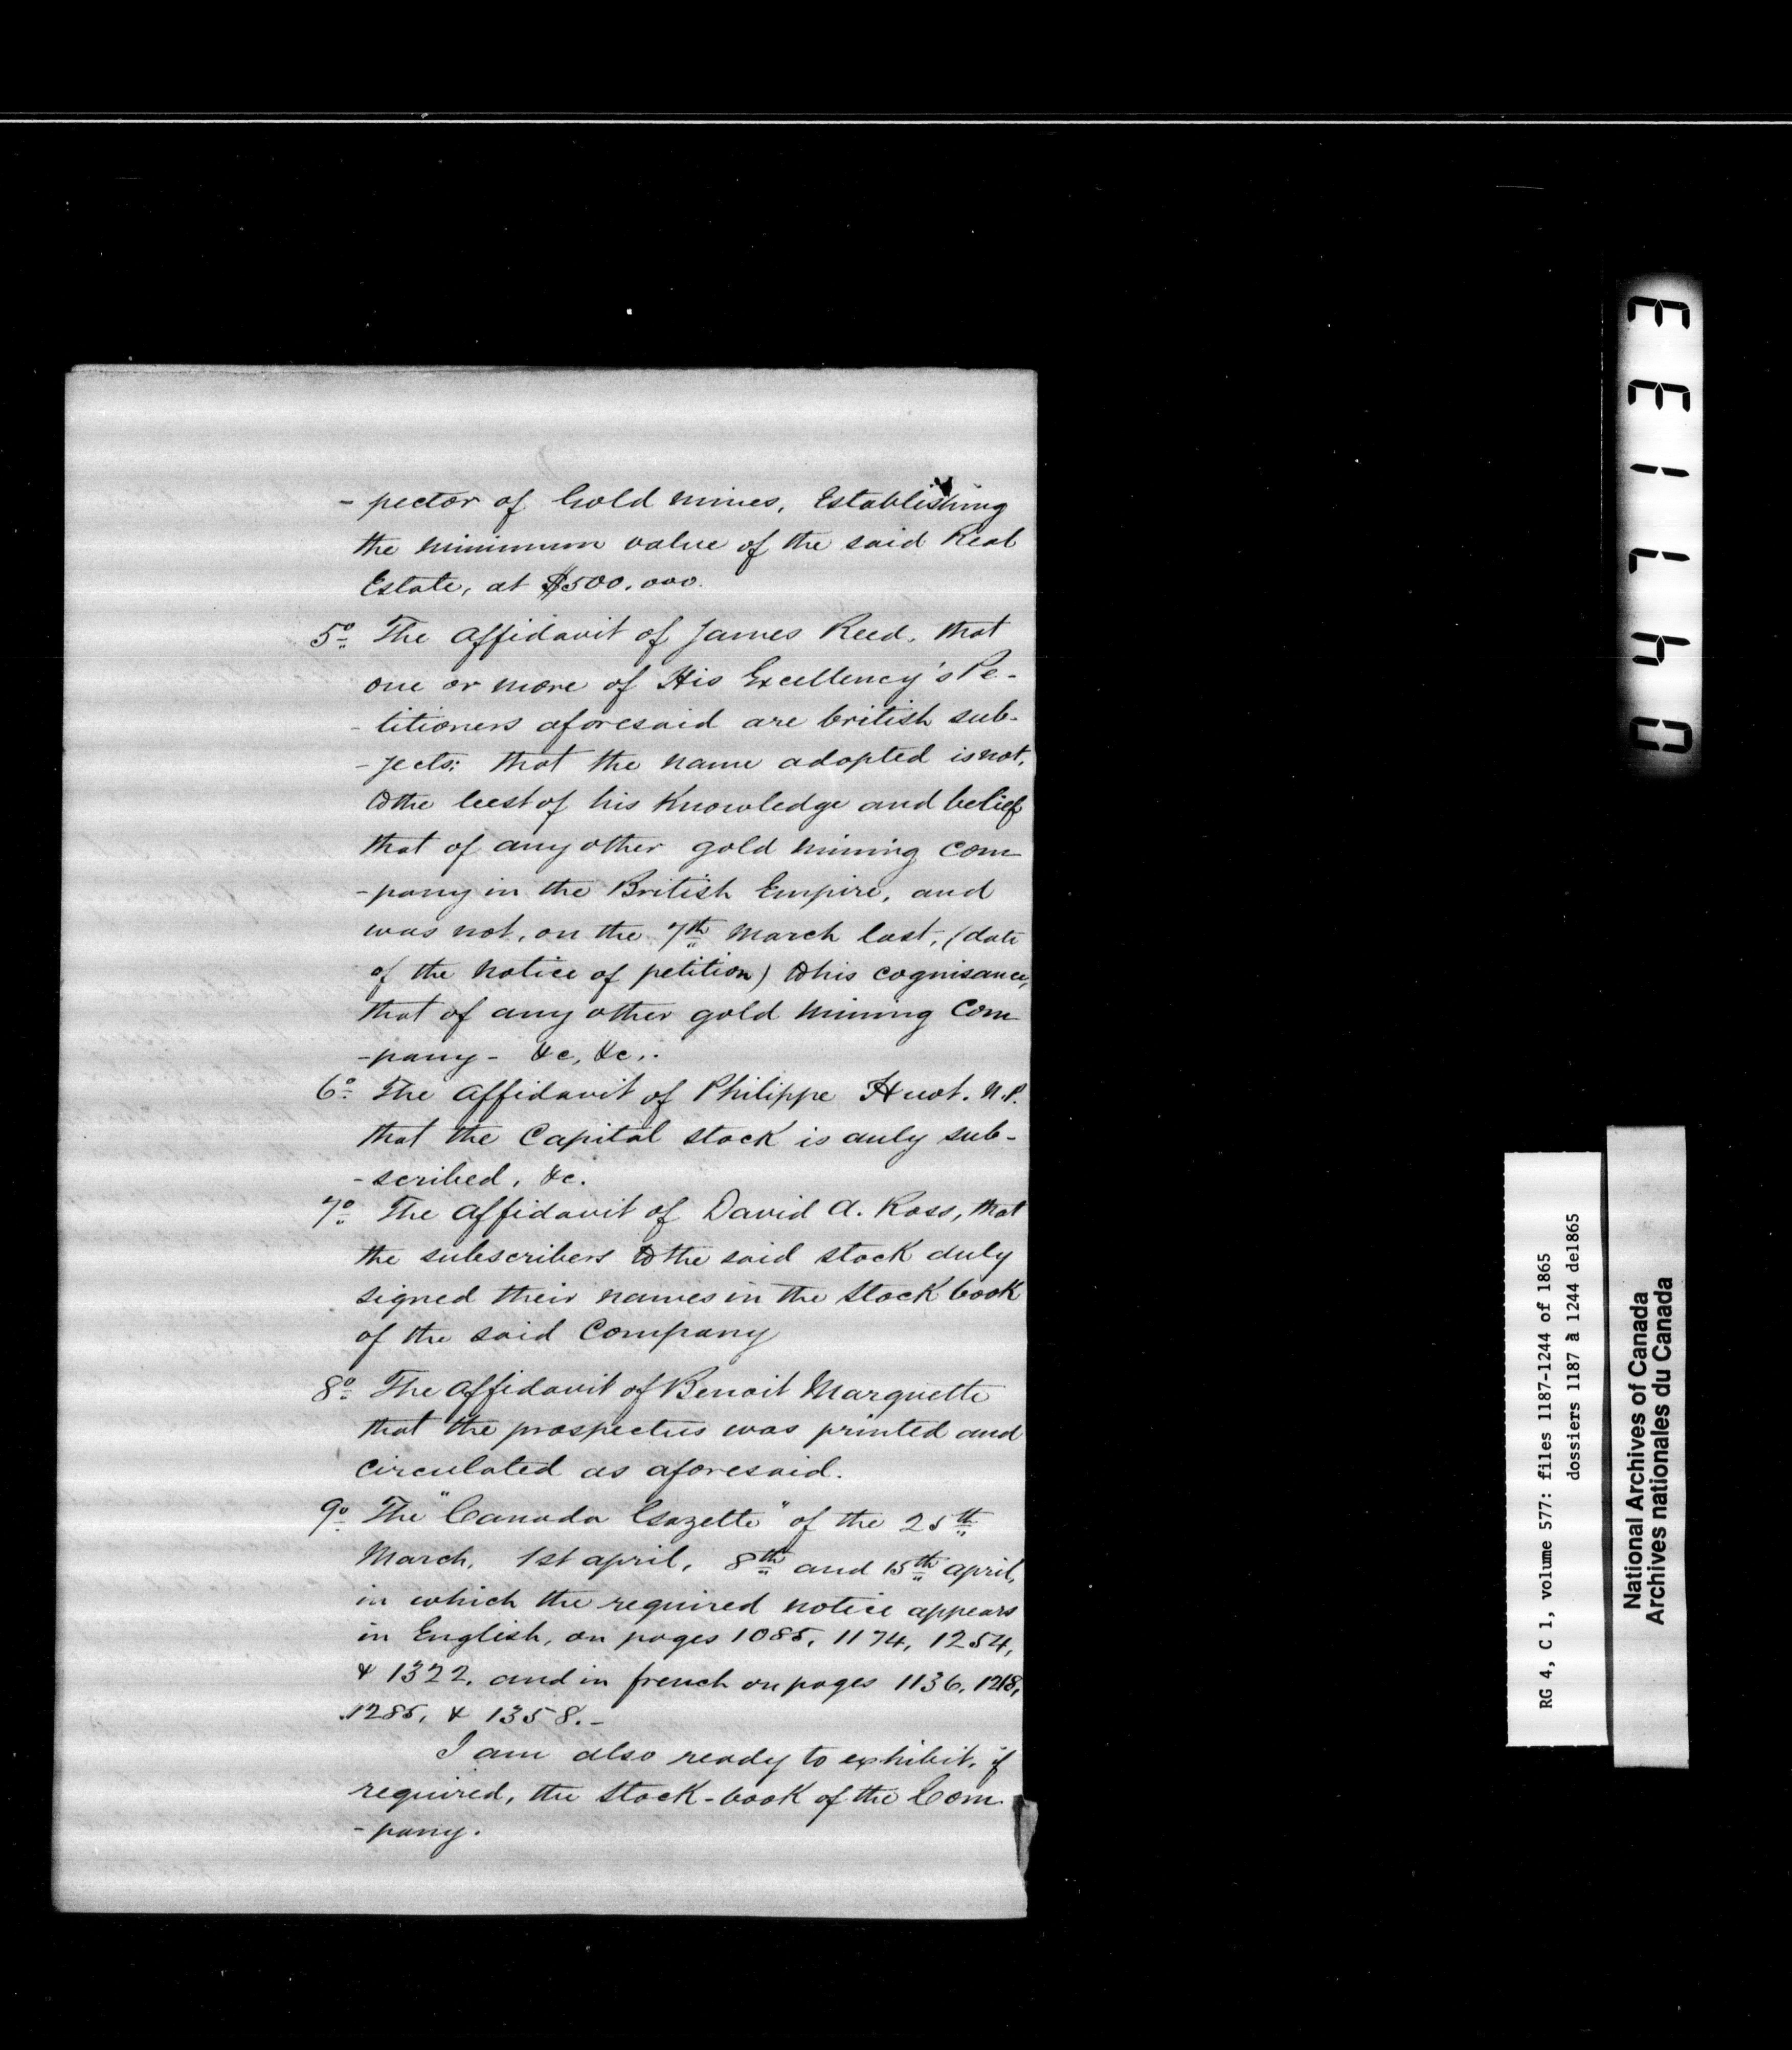 - pector of Gold mines, Establishing
the minimum value of the said Real
Estate, at $500.000.
5º The affidavit of James Reed, that
one or more of His Excellency's Pe-
- titioners aforesaid are british sub-
- jects; that the name adopted is not,
to the best of his knowledge and belief
that of any other gold mining com
- pany in the British Empire, and
was not, on the 7th March last, (date
of the notice of petition) to his cognisance,
that of any other gold mining Com
- pany - &c, &c,.
6º The affidavit of Philippe Huot. N.P.
that the Capital stock is duly sub-
- scribed, &c.
7º The affidavit of David A. Ross, that
the subscribers to the said stock duly
signed their names in the Stock book
of the said Company
8º The affidavit of Benoit Marquette
that the prospectus was printed and
circulated as aforesaid.
9º The "Canada Gazette" of the 25th
March, 1st april, 8th and 15th april,
in which the required notice appears
in English, on pages 1085, 1174, 1254,
& 1322, and in french on pages 1136, 1218,
1285, & 1358. -
I am also ready to exhibit, if
required, the Stock-book of the Com
- pany.
047133
RG 4, C 1, volume 577: files 1187-1244 of 1865
dossiers 1187 à 1244 de1865
National Archives of Canada
Archives nationales du Canada